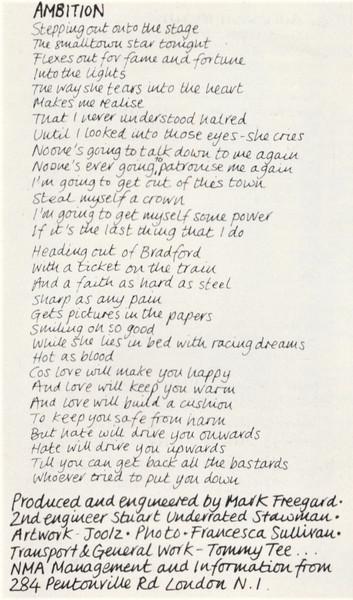 AMBITION
Stepping out onto the stage
The smalltown star tonight
Flexes out for fame and fortune
Into the lights
The way she tears into the heart
Makes me realise
That I never understood hatred
Until I looked into those eyes - she cries
Noone's going to talk down to me again
Noone's ever going to patronise me again
I'm going to get out of this town
Steal myself a crown
I'm going to get myself some power
If it's the last thing that I do
Heading out of Bradford
With a ticket on the train
And a faith as hard as steel
Sharp as any pain
Gets pictures in the papers
Smiling oh so good
While she lies in bed with racing dreams
Hot as blood
Cos love will make you happy
And love will keep you warm
And love will build a cushion
To keep you safe from harm
But hate will drive you onwards
Hate will drive you upwards
Till you can get back all the bastards
Whoever tried to put you down
Produced and engineered by Mark Freegard •
2nd engineer Stuart Underrated Stawman •
Artwork - Joolz • Photo • Francesca Sullivan •
Transport & General Work - Tommy Tee ...
NMA Management and Information from
284 Pentonville Rd London N.1.